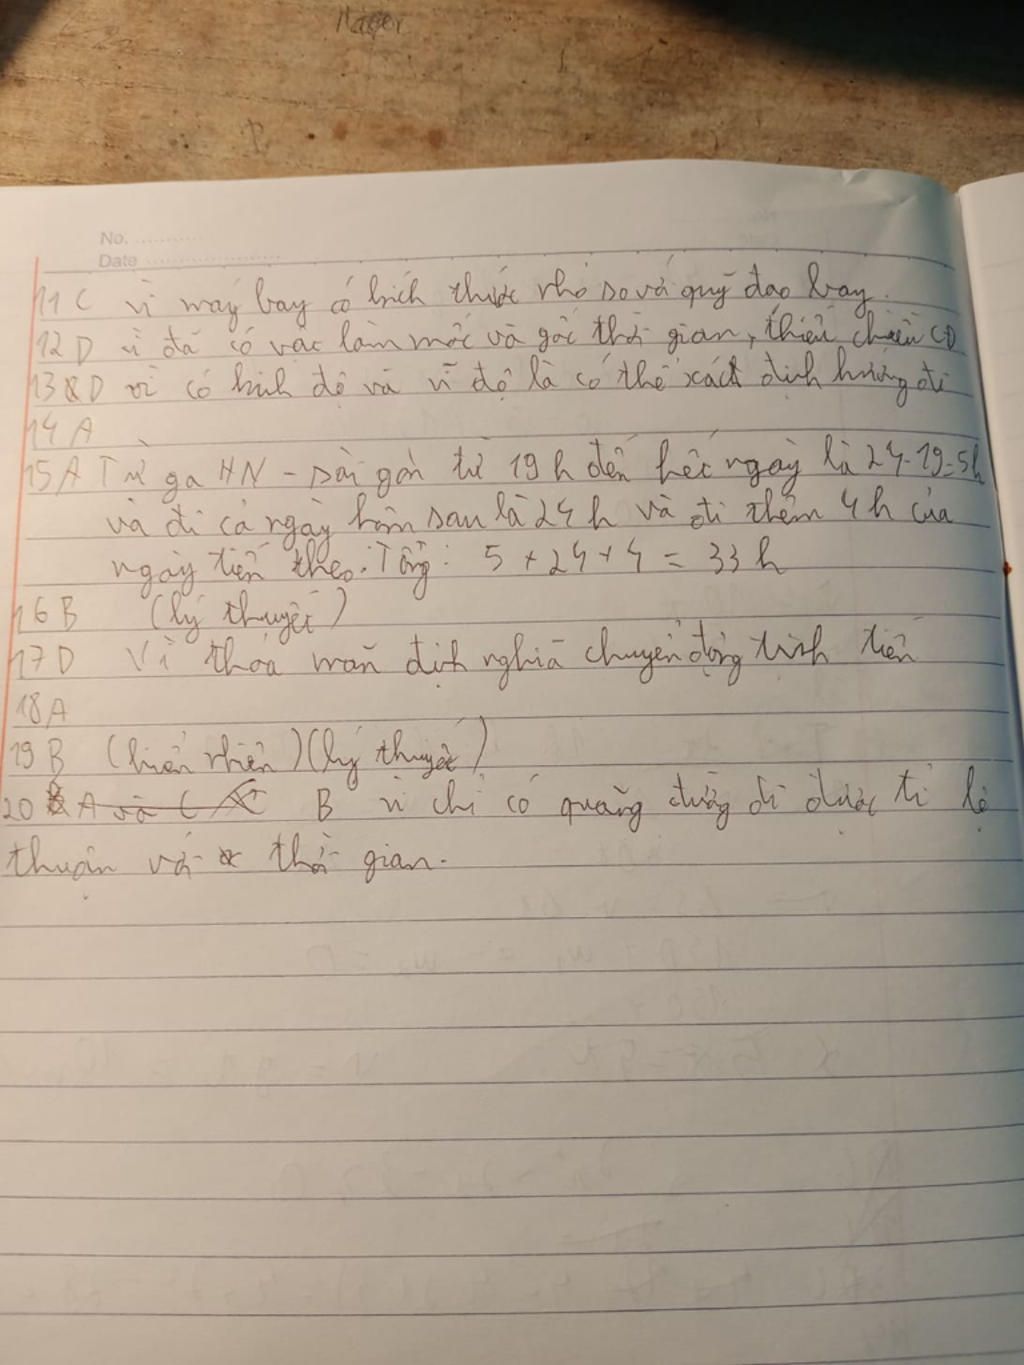 No. ............
Date ............
11 C vì máy bay có kích thước nhỏ so với quỹ đạo bay.
12 D vì đã có vật làm mốc và gốc thời gian, thiếu chiều CĐ
13 D vì có kinh độ và vĩ độ là có thể xác định hướng đi
14 A
15 A Từ ga HN - Sài gòn từ 19 h đến hết ngày là 24-19=5h
và đi cả ngày hôm sau là 24 h và đi thêm 4 h của
ngày tiếp theo. Tổng: 5 + 24 + 4 = 33 h
16 B (lý thuyết)
17 D Vì thỏa mãn định nghĩa chuyển động tịnh tiến
18 A
19 B (hiển nhiên) (lý thuyết)
20 A và C B vì chỉ có quãng đường đi được tỉ lệ
thuận với thời gian.